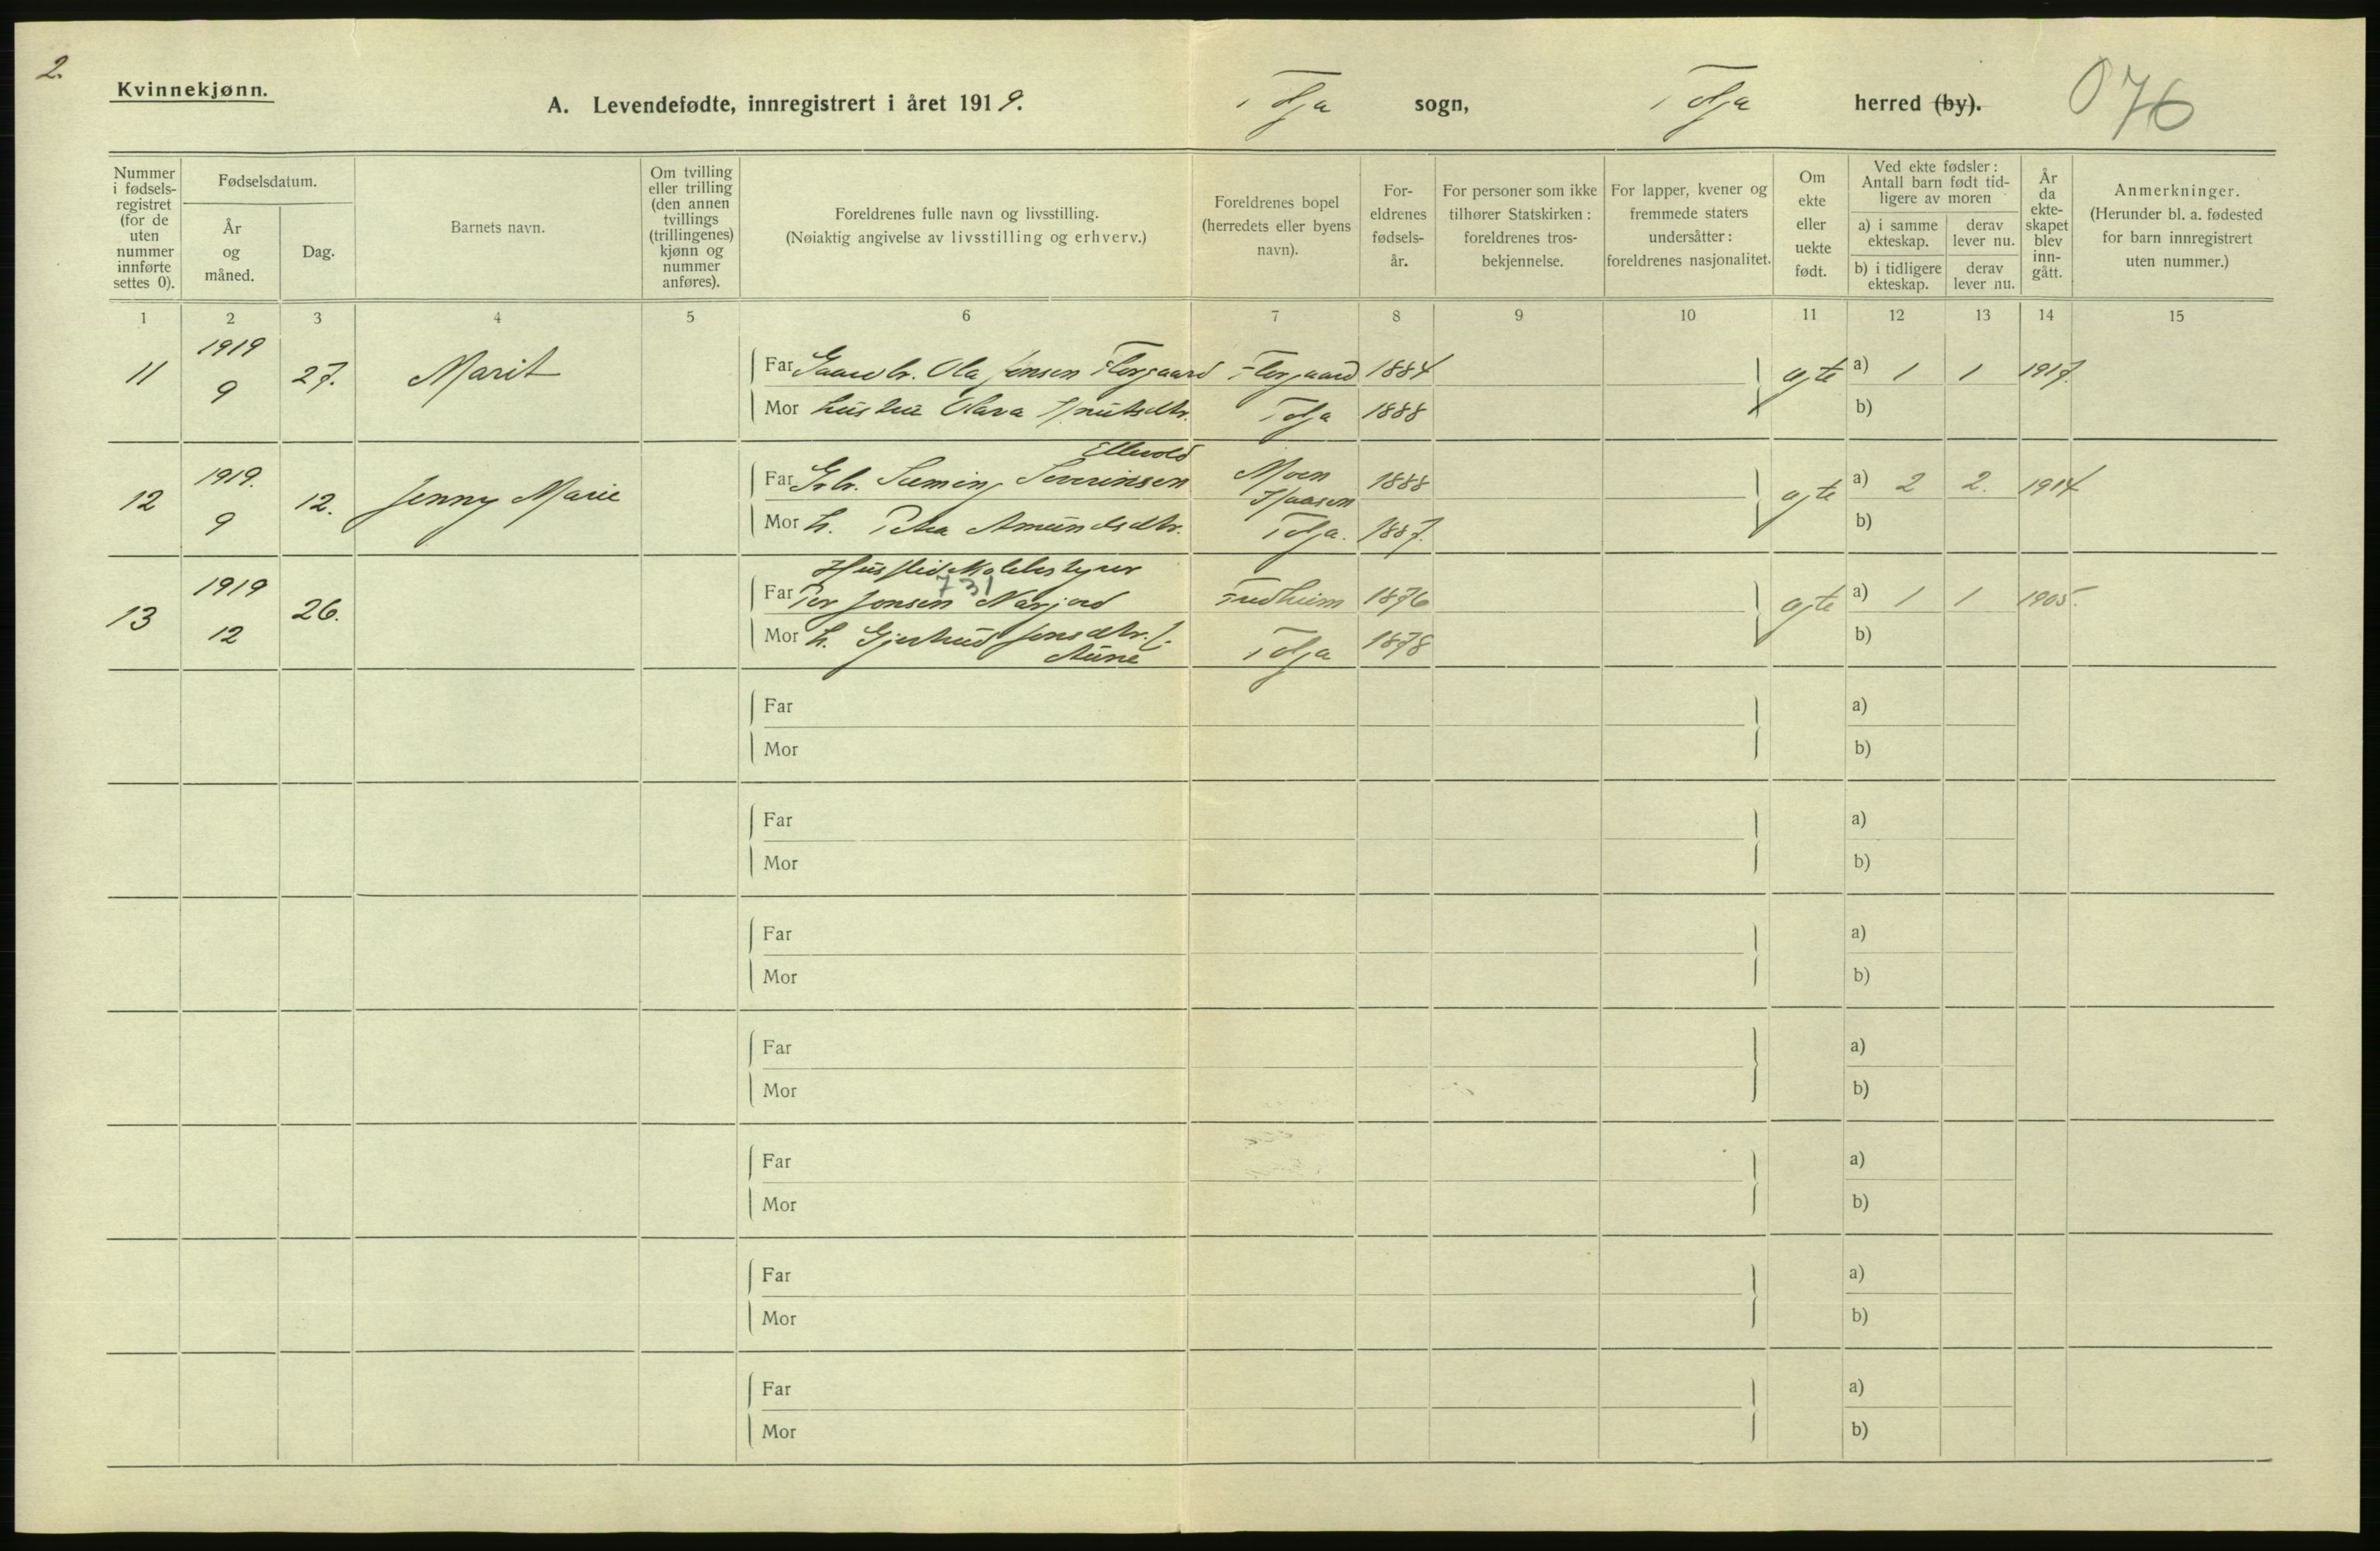 2.
Kvinnekjønn.
A. Levendefødte, innregistrert i året 1919.
Tolga sogn, Tolga herred (by).
076
Nummer i fødsels-registret (for de uten nummer innførte settes 0).
Fødselsdatum.
År og måned.
Dag.
Barnets navn.
Om tvilling eller trilling (den annen tvillings (trillingenes) kjønn og nummer anføres).
Foreldrenes fulle navn og livsstilling.
(Nøiaktig angivelse av livsstilling og erhverv.)
Foreldrenes bopel (herredets eller byens navn).
For-eldrenes fødsels-år.
For personer som ikke tilhører Statskirken: foreldrenes tros-bekjennelse.
For lapper, kvener og fremmede staters undersåtter: foreldrenes nasjonalitet.
Om ekte eller uekte født.
Ved ekte fødsler: Antall barn født tid-ligere av moren
a) i samme ekteskap.
derav lever nu.
b) i tidligere ekteskap.
derav lever nu.
År da ekte-skapet blev inn-gått.
Anmerkninger.
(Herunder bl. a. fødested for barn innregistrert uten nummer.)
1 2 3 4 5 6 7 8 9 10 11 12 13 14 15
11 1919 9 27. Marit
Far Gaardbr. Ola Jonsen 1884 a) 1 1 1917.
Mor hustru Olava Knutsdtr. Tolga 1888 b)
12 1919. 9 12. Jenny Marie
Far Gbr. Severinsen Moen 1888 a) 2 2. 1914
Mor h. Amundsdtr. Tolga. 1887. b)
13 1919 12 26.
731
Far Per Jonsen Narjord 1876 a) 1 1 1905.
Mor h. Gjertrud Jonsdtr. f. Aune Tolga 1878 b)
Far a)
Mor b)
Far a)
Mor b)
Far a)
Mor b)
Far a)
Mor b)
Far a)
Mor b)
Far a)
Mor b)
Far a)
Mor b)